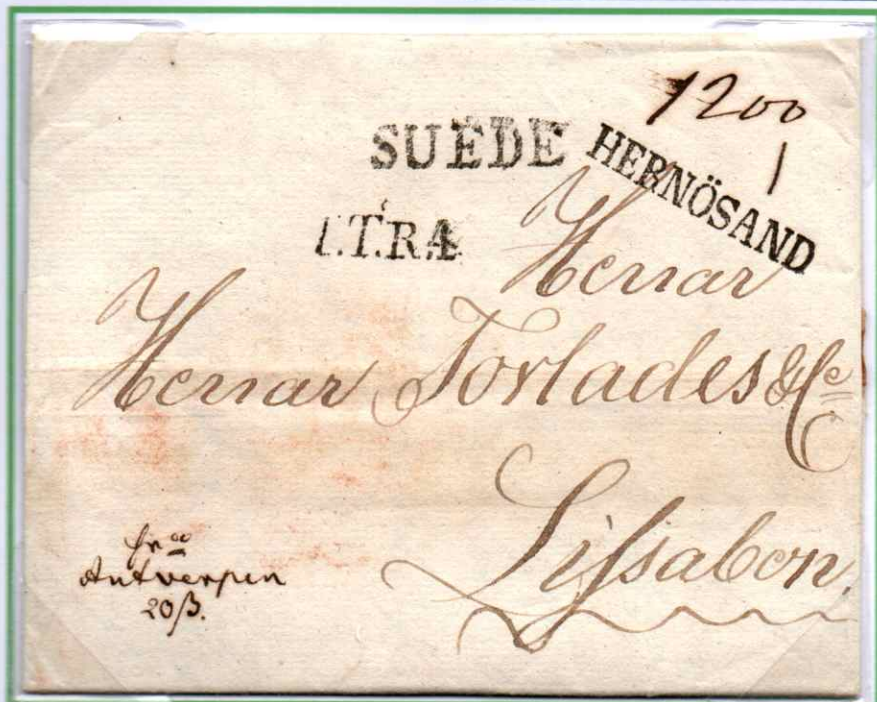 1200
1
SUEDE
HERNÖSAND
T.T.R.4
Herrar
Herrar Torlades & Ce
Lissabon
fr co
Antwerpen
20ß.